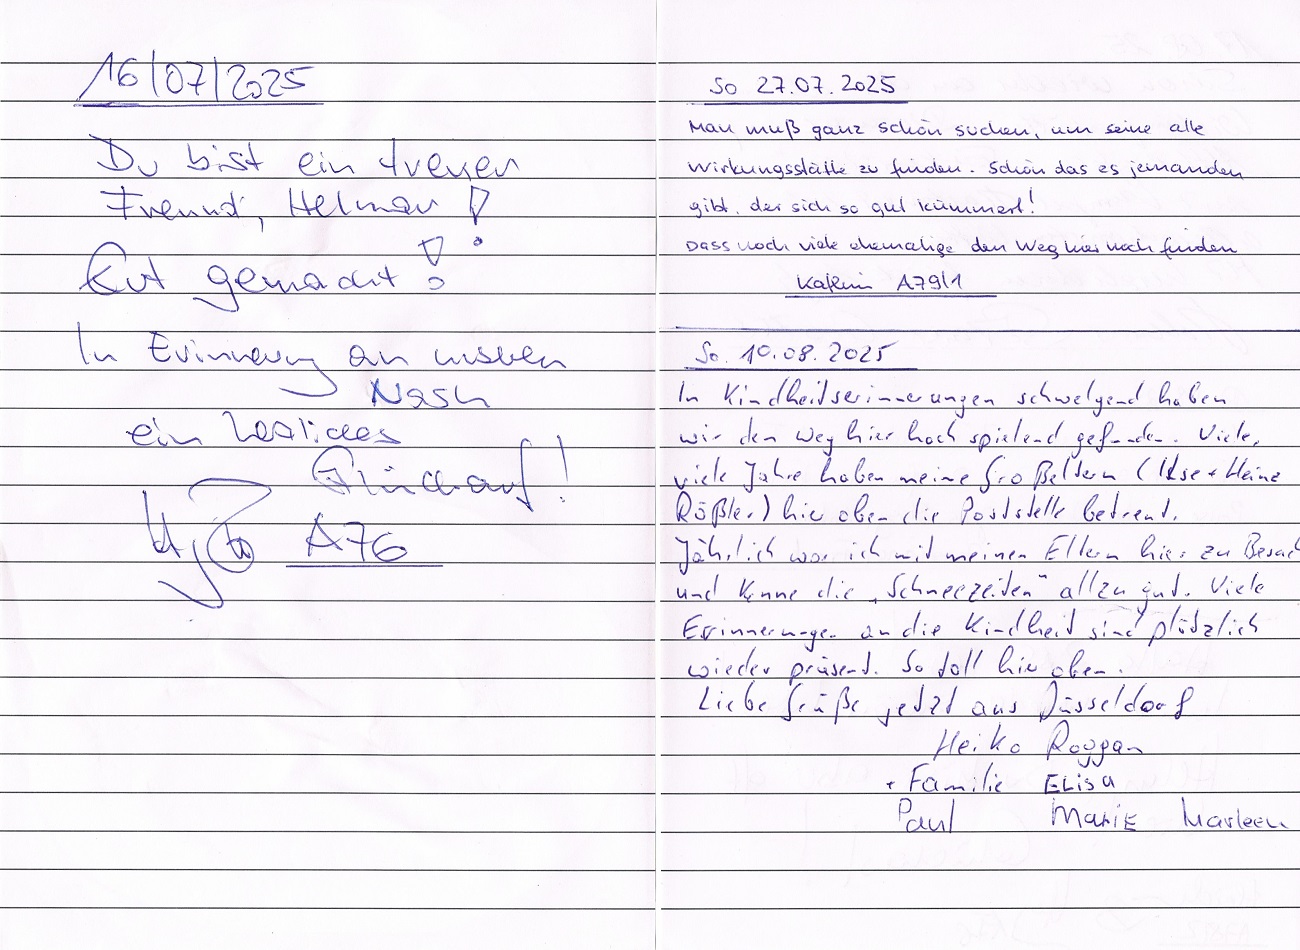 16/07/2025
Du bist ein treuer
Freund, Helmar!
Gut gemacht!
In Erinnerung an unseren
Nash
ein
Glückauf!
A76
So 27.07.2025
Man muß ganz schön suchen, um seine alte
Wirkungsstätte zu finden. Schön das es jemanden
gibt, der sich so gut kümmert!
Dass noch viele ehemalige den Weg hier hoch finden
A79/1
So. 10.08.2025
In Kindheitserinnerungen schwelgend haben
wir den Weg hier hoch spielend gefunden. Viele,
viele Jahre haben meine Großeltern (Ilse + Heinz
Rößler) hier oben die Poststelle betreut.
Jährlich war ich mit meinen Eltern hier zu Besuch
und kenne die „Schneezeiten" allzu gut. Viele
Erinnerungen an die Kindheit sind plötzlich
wieder präsent. So toll hier oben.
Liebe Grüße jetzt aus Düsseldorf
Heiko Roggan
+ Familie Elisa
Paul Marie Marleen